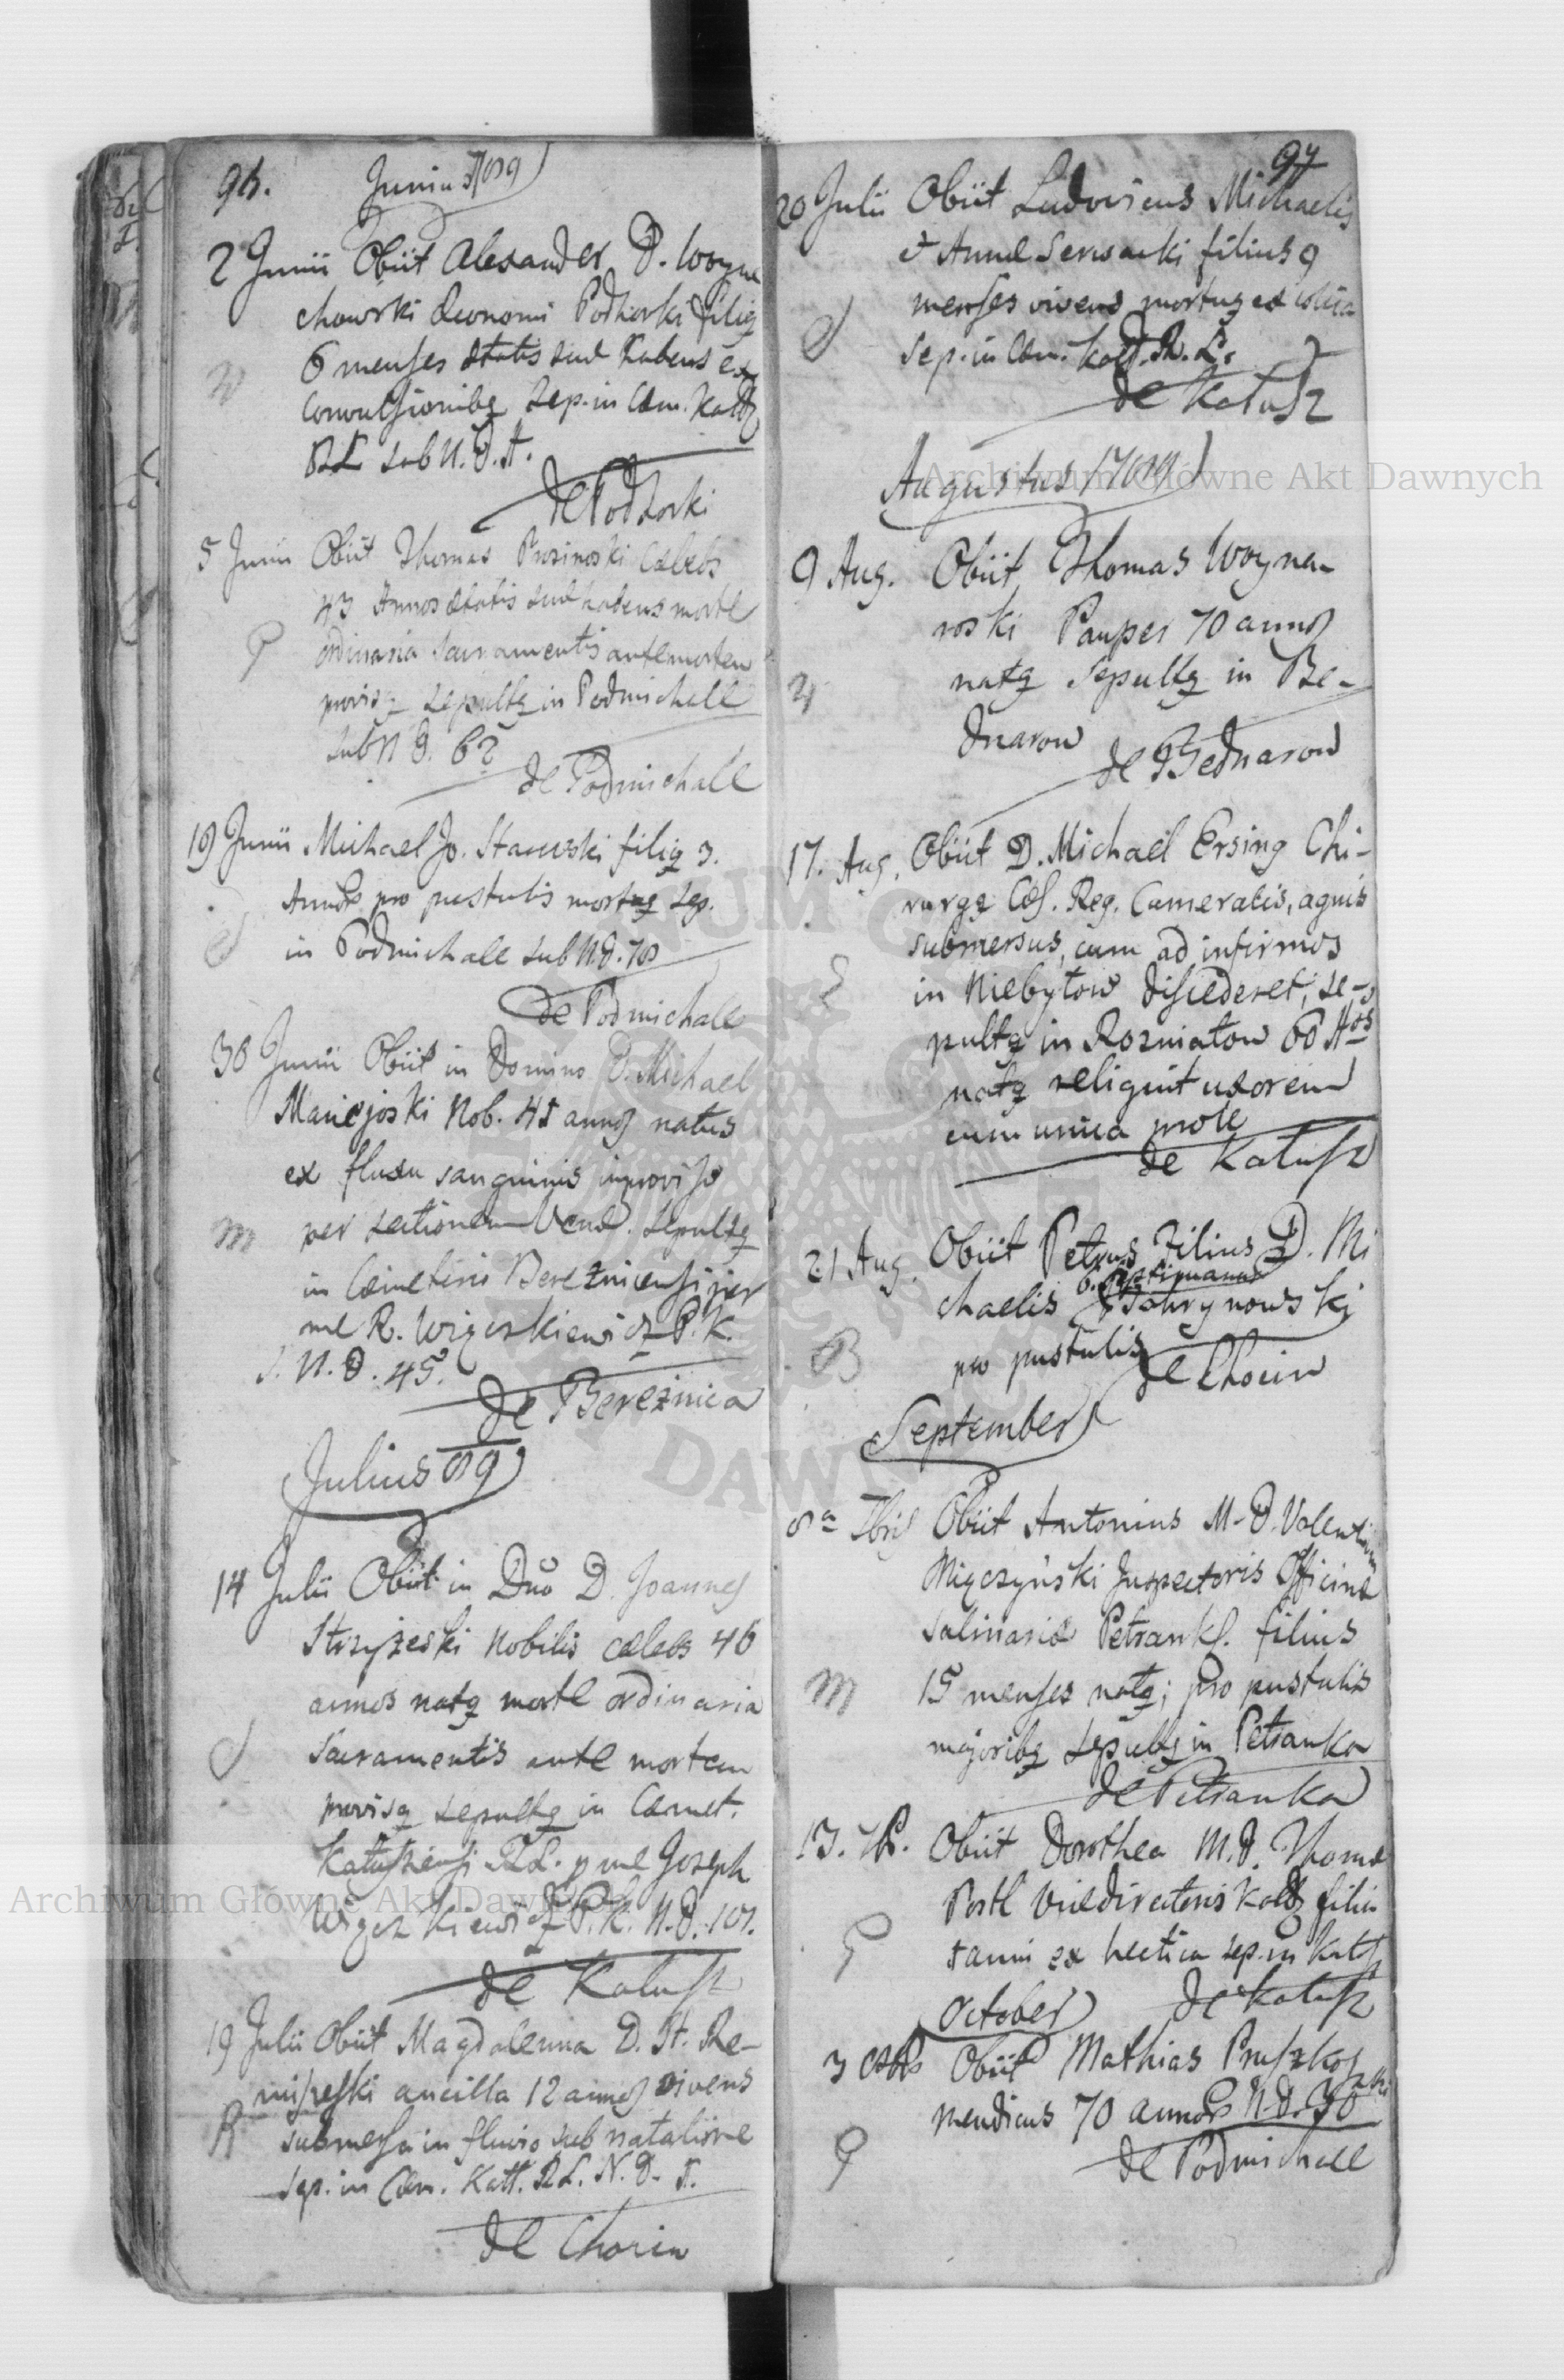 96. Junius 1789
2 Junii Obiit Alexander D. Woyne
chowski Œconomi Podhorki filiq
6 menses ætatis suæ habens ex
convulsionibq Sep. in Cæm. Kał
RL sub N. D. 4.
de Podhorki
5 Junii Obiit Thomas Cælebs
43 Annos ætatis suæ habens morte
ordinaria Sacramentis ante mortem
provisq Sepultq in Podmichale
sub N D. 62
de Podmichale
19 Junii Michael Jo. Stawski filiq 3.
Annor pro pustulis mortuq Sep.
in Podmichale sub N. D. 78
de Podmichale
30 Junii Obiit in Domino D. Michael
Maciejoski Nob. 45 annos natus
ex fluxu sanguinis improviso
per sectionem Venæ. Sepultq
in Cæmeterio Bereźnicensi per
me R. Więczkiewicz P. K.
S. N. D. 45.
de Bereźnica
Julius 89
14 Julii Obiit in Dno D. Joannes
Strzyżeski Nobilis cælebs 46
annos natq morte ordinaria
Sacramentis ante mortem
provisq Sepultq in Cæmet.
Kałuszensi RL. p me Joseph
Więczkiewicz P. K. N. D. 101.
de Kałusz
19 Julii Obiit Magdalenna D. St. Re-
miszeski ancilla 12 annos vivens
submersa in fluvio sub natatione
Sep. in Cæm. Kałł. RL. N. D. 5.
de Chocin
97
20 Julii Obiit Ludovicus Michaelis
et Annæ filius 9
menses vivens mortuq ex colica
Sep. in Cæm. Kał. R. L.
de Kałusz
Augustus 1789
9 Aug. Obiit Thomas Woyna-
roski Pauper 70 annos
natq Sepultq in Be-
dnarow
de Bednarow
17. Aug. Obiit D. Michael Ersing Chi-
rurgq Cæs. Reg. Cameralis, aquis
submersus, cum ad infirmos
in Niebyłow discederet, se-
pultq in Rozniatow 60 Aos
natq reliquit uxorem
cum unica prole
de Kałusz
21 Aug. Obiit Petrus Filius D. Mi
chaelis Bohrynowski
6. septimanar
pro pustulis
de Chocin
September
8a 7bris Obiit Antonius M. D. Valentini
Mięczyński Inspectoris Officinæ
Salinariæ Petrank. filius
15 menses natq; pro pustulis
majoribq Sepultq in Petranka
de Petranka
13. 7b. Obiit Dorothea M. D. Thomæ
Postl Vicedirectoris Kał filia
anni ex hectica sep. in Kał
de Kałusz
October
3 8bris Obiit Mathias Pruszkoski
mendicus 70 annor N. D. 30
de Podmichale
Archiwum Główne Akt Dawnych
Archiwum Główne Akt Dawnych